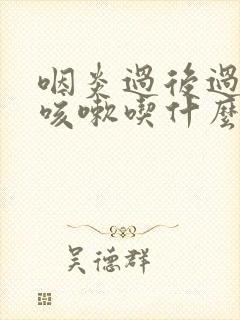 咽炎過後過
咳嗽喫什麼
吴德群